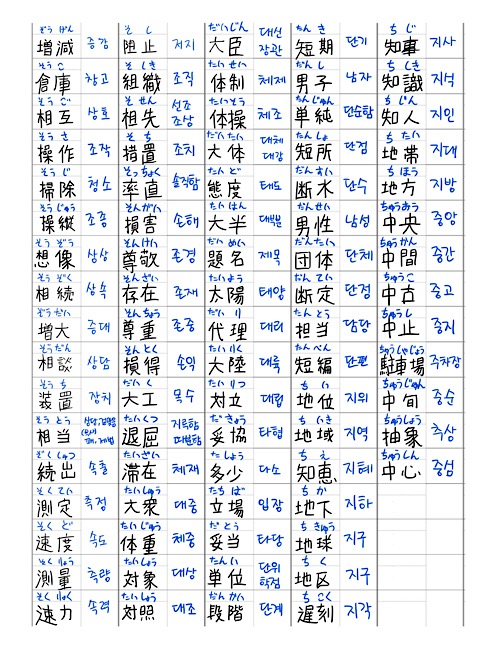 ぞうげん 増減 증감
そうこ 倉庫 창고
そうご 相互 상호
そうさ 操作 조작
そうじ 掃除 청소
そうじゅう 操縦 조종
そうぞう 想像 상상
そうぞく 相続 상속
ぞうだい 増大 증대
そうだん 相談 상담
そうち 装置 장치
そうとう 相当
ぞくしゅつ 続出 속출
そくてい 測定 측정
そくど 速度 속도
そくりょう 測量 측량
そくりょく 速力 속력
そし 阻止 저지
そしき 組織 조직
そせん 祖先 선조 조상
そち 措置 조치
そっちょく 率直 솔직함
そんがい 損害 손해
そんけい 尊敬 존경
そんざい 存在 존재
そんちょう 尊重 존중
そんとく 損得 손익
だいく 大工 목수
たいくつ 退屈 지루함 따분함
たいざい 滞在 체재
たいしゅう 大衆 대중
たいじゅう 体重 체중
たいしょう 対象 대상
たいしょう 対照 대조
だいじん 大臣 대신 장관
たいせい 体制 체제
たいそう 体操 체조
だいたい 大体 대체 대강
たいど 態度 태도
たいはん 大半 대부분
だいめい 題名 제목
たいよう 太陽 태양
だいり 代理 대리
たいりく 大陸 대륙
たいりつ 対立 대립
だきょう 妥協 타협
たしょう 多少 다소
たちば 立場 입장
だとう 妥当 타당
たんい 単位 단위 학점
だんかい 段階 단계
たんき 短期 단기
だんし 男子 남자
たんじゅん 単純 단순함
たんしょ 短所 단점
だんすい 断水 단수
だんせい 男性 남성
だんたい 団体 단체
だんてい 断定 단정
たんとう 担当 담당
たんぺん 短編 단편
ちい 地位 지위
ちいき 地域 지역
ちえ 知恵 지혜
ちか 地下 지하
ちきゅう 地球 지구
ちく 地区 지구
ちこく 遅刻 지각
ちじ 知事 지사
ちしき 知識 지식
ちじん 知人 지인
ちたい 地帯 지대
ちほう 地方 지방
ちゅうおう 中央 중앙
ちゅうかん 中間 중간
ちゅうこ 中古 중고
ちゅうし 中止 중지
ちゅうしゃじょう 駐車場 주차장
ちゅうじゅん 中旬 중순
ちゅうしょう 抽象 추상
ちゅうしん 中心 중심